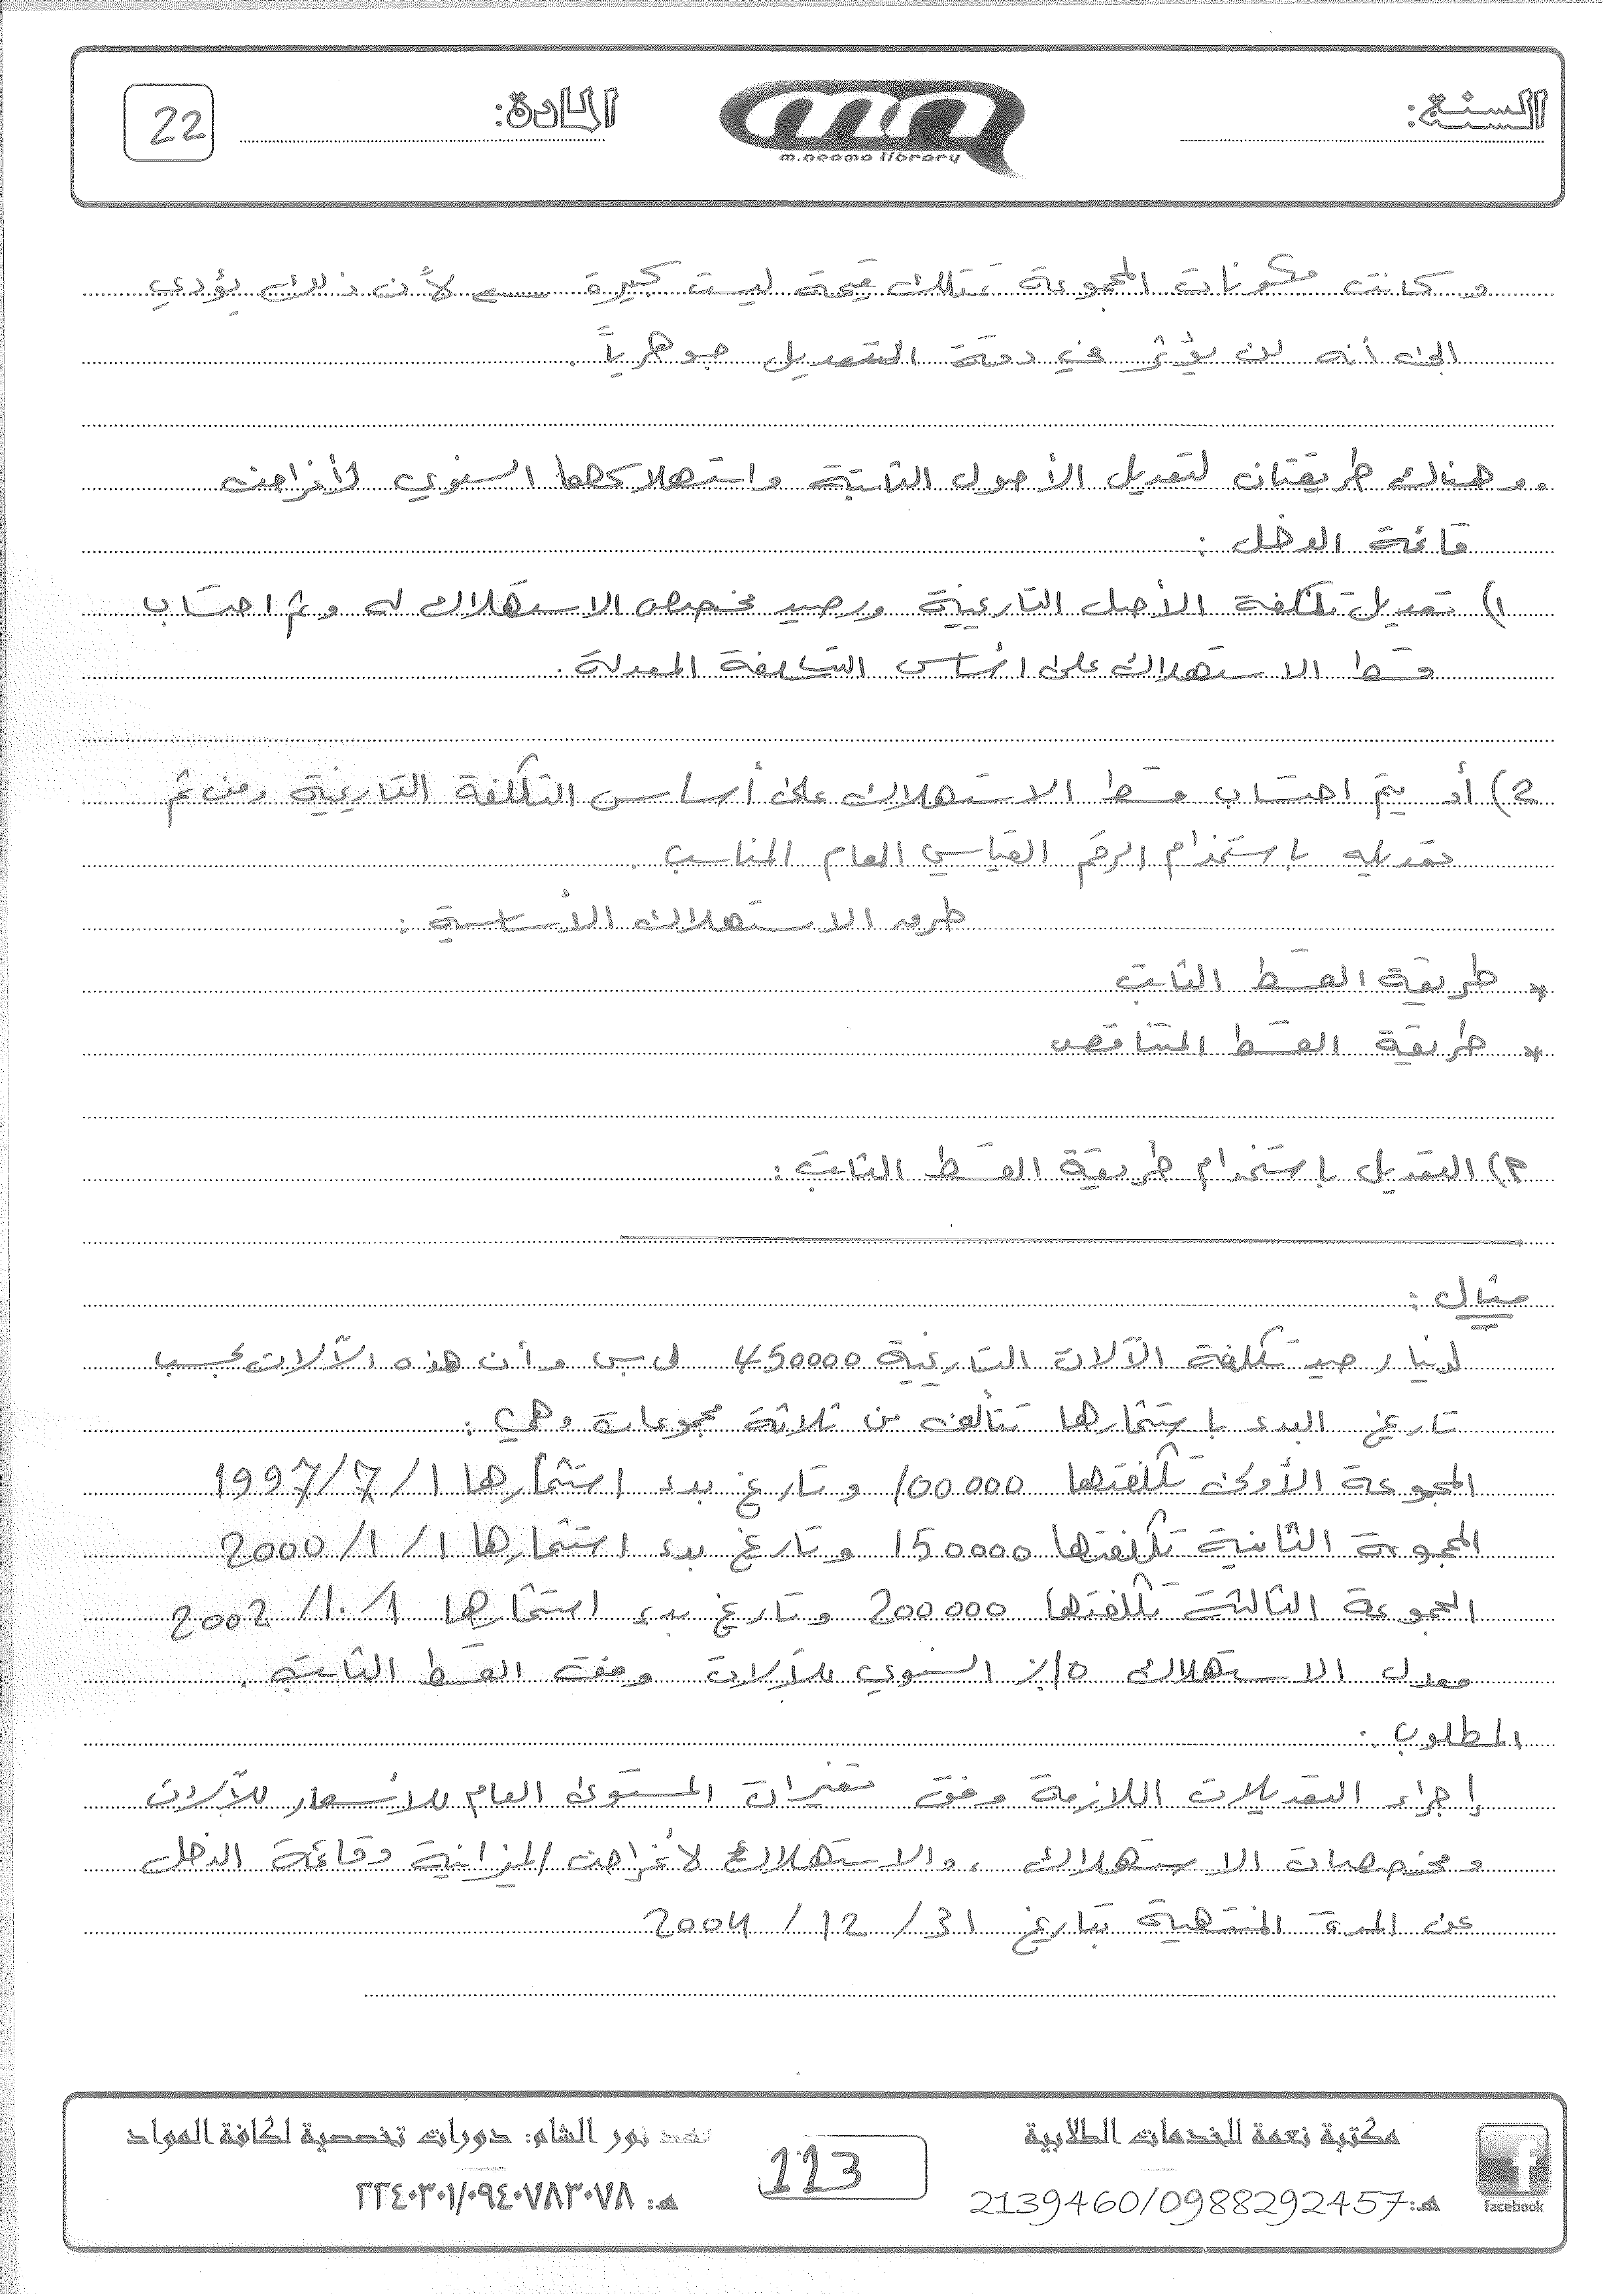 السنة:
m.neama library
المادة:
22
و كانت مكونات المجموعة تمتلك قيمة ليست كبيرة لأن ذلك يؤدي
الى أنه لن يؤثر في دقة التعديل جوهرياً .
وهناك طريقتان لتعديل الأصول الثابتة واستهلاكها السنوي لأغراض
قائمة الدخل :
1) تعديل تكلفة الأصل التاريخية ورصيد مخصص الاستهلاك له وثم احتساب
قسط الاستهلاك على اساس التكلفة المعدلة .
2) أو يتم احتساب قسط الاستهلاك على أساس التكلفة التاريخية ومن ثم
تعديله باستخدام الرقم القياسي العام المناسب .
طرق الاستهلاك الأساسية :
* طريقة القسط الثابت
* طريقة القسط المتناقص
م) التعديل باستخدام طريقة القسط الثابت :
مثال :
لدينا رصيد تكلفة الآلات التاريخية 450000 ل.س وأن هذه الآلات بحسب
تاريخ البدء باستثمارها تتألف من ثلاثة مجموعات وهي :
المجموعة الأولى تكلفتها 100000 و تاريخ بدء استثمارها 1/7/1997
المجموعة الثانية تكلفتها 150000 و تاريخ بدء استثمارها 1/1/2000
المجموعة الثالثة تكلفتها 200000 و تاريخ بدء استثمارها 1/10/2002
معدل الاستهلاك السنوي للآلات وفق القسط الثابت .
المطلوب :
إجراء التعديلات اللازمة وفق تغيرات المستوى العام للأسعار للآلات
ومخصصات الاستهلاك ، والاستهلاك لأغراض الميزانية وقائمة الدخل
عن المدة المنتهية بتاريخ 31/12/2004
مكتبة نعمة للخدمات الطلابية
هـ: 2139460/0988292457
facebook
113
نور الشام: دورات تخصصية لكافة المواد
هـ: ٢٢٤٠٣٠١/٠٩٤٠٧٨٣٠٧٨